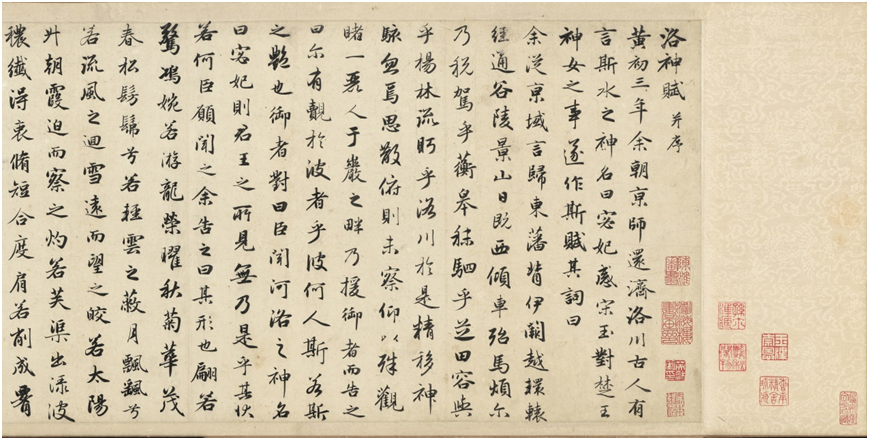 洛神賦 并序
黃初三年余朝京師還濟洛川古人有
言斯水之神名曰宓妃感宋玉對楚王
神女之事遂作斯賦其詞曰
余從京域言歸東藩背伊闕越轘轅
經通谷陵景山日既西傾車殆馬煩尔
乃税駕乎蘅皋秣駟乎芝田容與
乎楊林流眄乎洛川於是精移神
駭忽焉思散俯則未察仰以殊觀
睹一麗人于巖之畔乃援御者而告之
曰尔有覿於波者乎彼何人斯若斯
之豔也御者對曰臣聞河洛之神名
曰宓妃則君王之所見無乃是乎其狀
若何臣願聞之余告之曰其形也翩若
驚鴻婉若游龍榮曜秋菊華茂
春松髣髴兮若輕雲之蔽月飄颻兮
若流風之迴雪遠而望之皎若太陽
升朝霞迫而察之灼若芙蕖出淥波
穠纖得衷脩短合度肩若削成䙅